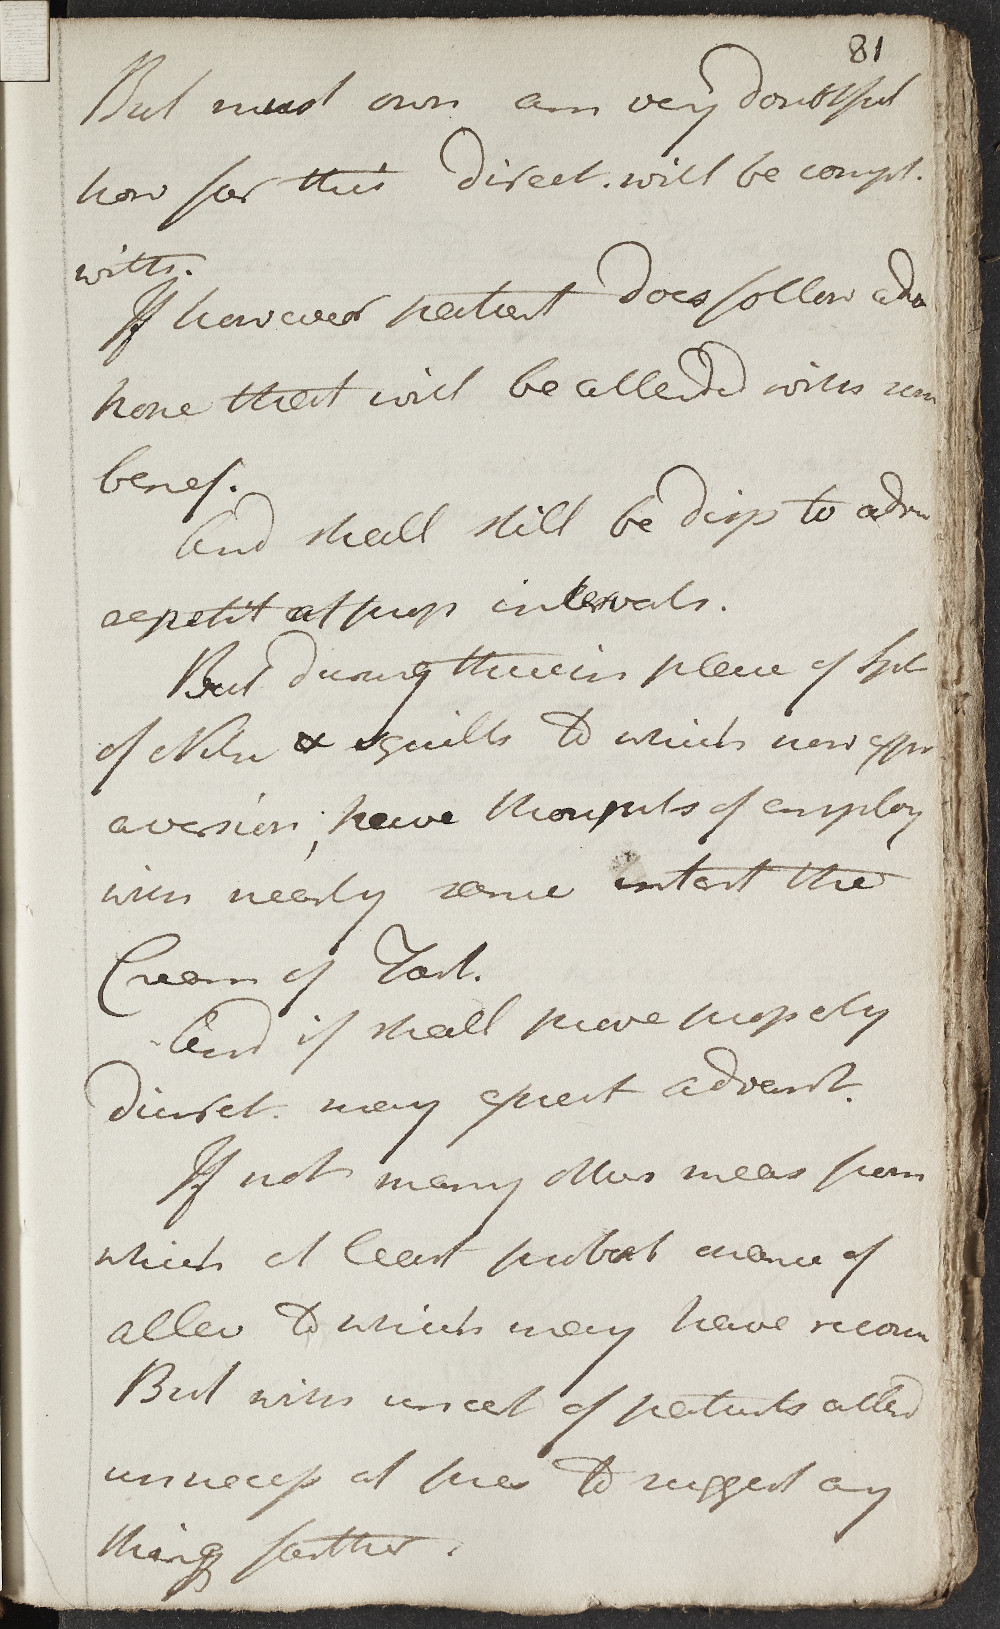 81
But must own am very doubtful
how far this direct. will be compl.
with.
If however patient does follow adv
hope that will be attended with some
benef.
And shall still be disp to adv
repetit at prop intervals.
But during their in place of Spt
of Nitre & squills to which now
aversion, have thoughts of employ
with nearly same intent the
Cream of Tart.
And if shall prove properly
diuret. may expect advant.
If not many other meas from
which at least probab chance of
allev to which may have recour
But with uncert of patients attend
unnecess at pres to suggest any
thing farther.